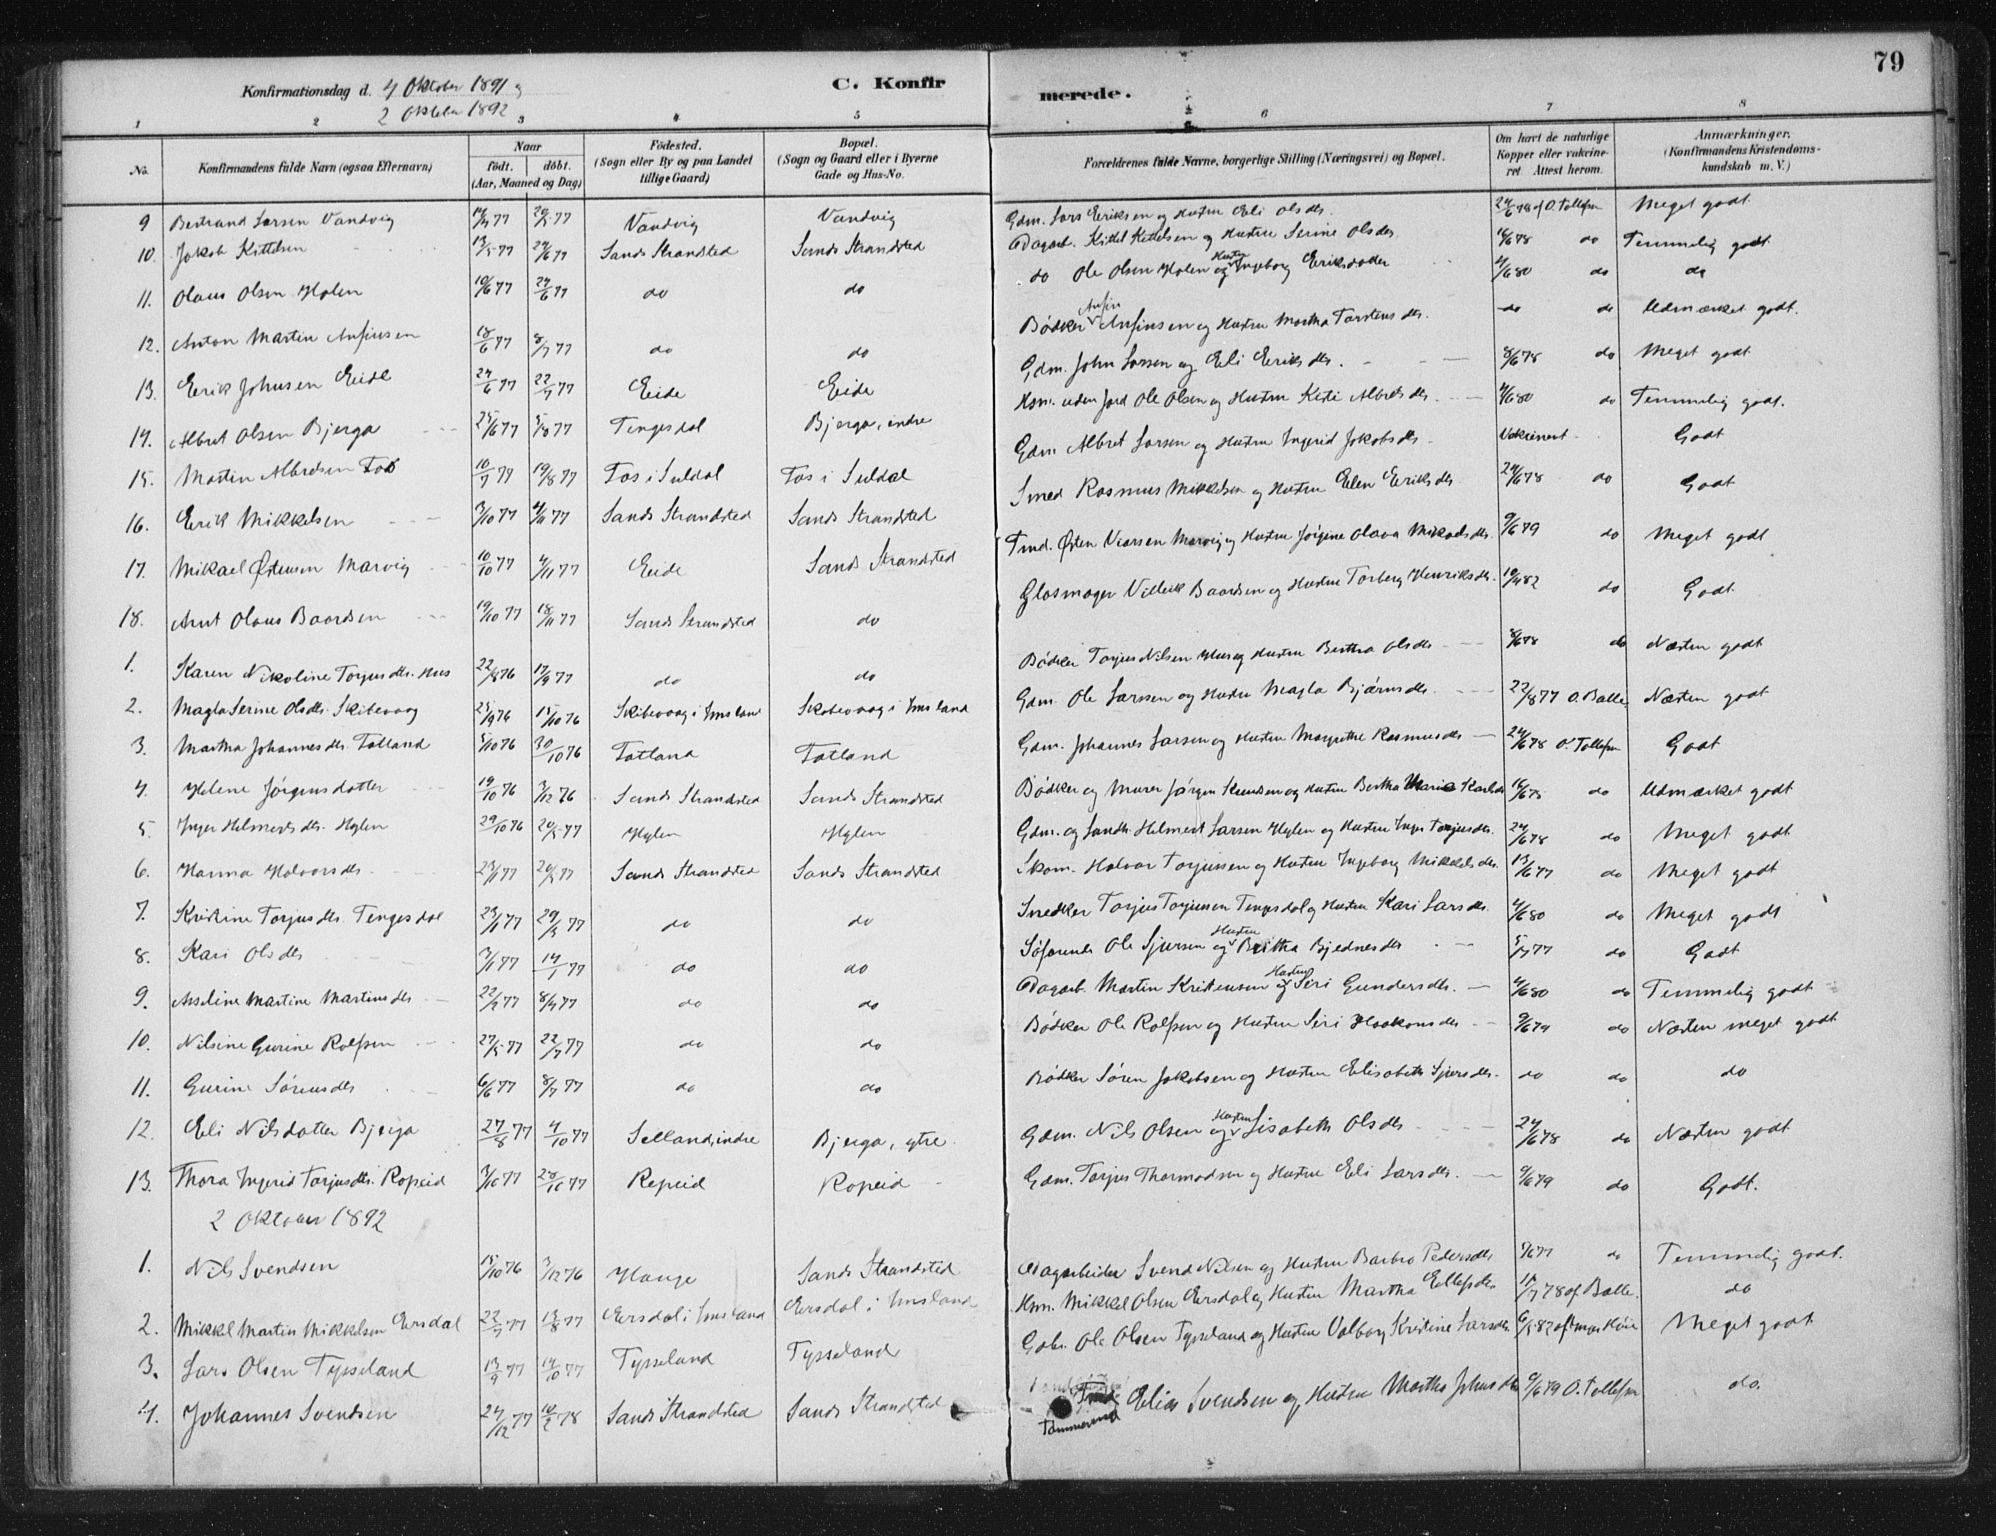 79
Konfirmationsdag d. 4 Oktober 1891 og
2 Oktober 1892
C. Konfirmerede.
1 2 3 4 5 6 7 8
No. Konfirmandens fulde Navn (ogsaa Efternavn) Naar födt. döbt. (Aar, Maaned og Dag) Födested. (Sogn eller By og paa Landet tillige Gaard) Bopæl. (Sogn og Gaard eller i Byerne Gade og Hus-No. Forældrenes fulde Navne, borgerlige Stilling (Næringsvei) og Bopæl. Om havt de naturlige Kopper eller vakcineret. Attest herom. Anmærkninger. (Konfirmandens Kristendomskundskab m. V.)
9 Bertrand Larsen Vandvig Vandvig Vandvig Gdm. Lars Eriksen og Hustru Eli Olsdr. 24/6 78 af O. Tollefsen Meget godt
10. Jakob Kittelsen Sands Strandsted Sands Strandsted Dagarb. Kittel Kittelsen og Hustru Serine Olsdr. do Temmelig godt
11. Olaus Olsen Hylen 24/6 77 do do do Ole Olsen Hylen og Hustru Ingeborg Eriksdatter 4/6 80 do do
12. Anton Martin Anfinsen 18/6 77 8/7 77 do do Bødker Anfin Anfinsen og Hustru Martha Torstensdr. do do Udmærket godt.
13. Erik Johnsen Eide 24/6 77 22/7 77 Eide Eide Gdm. John Larsen og Eli Eriksdr. 8/6 78 do Meget godt
14. Albret Olsen Bjerga 25/6 77 5/8 77 Tengesdal Bjerga, indre Hsm. uden Jord Ole Olsen og Hustru Kiti Albretsdr. 4/6 80 do Temmelig godt.
15. Martin Albretsen Fos 10/7 77 19/8 77 Fos i Suldal Fos i Suldal Gdm. Albret Larsen og Hustru Ingrid Jakobsdr. Vakcineret Godt
16. Erik Mikkelsen 3/10 77 4/11 77 Sands Strandsted Sands Strandsted Smed Rasmus Mikkelsen og Hustru Elen Eriksdr. 24/6 78 do Godt
17. Mikael Østensen Marvig 10/10 77 4/11 77 Eide Sands Strandsted Tmd. Østen Viarsen Marvig og Hustru Jørgine Olava Mikaelsdr. 9/6 79 do Meget godt
18. Arnt Olaus Baardsen 19/10 77 18/11 77 Sands Strandsted do Glasmager Villeik Baardsen og Hustru Torberg Henriksdr. do Godt
1. Karen Nikoline Torjusdr. Hus do do Bødker Torjus Nilsen Hus og Hustru Bertha Olsdr. 8/6 78 do Næsten godt
2. Magla Serine Olsdr. Skibevaag 25/9 76 15/10 76 Skibevaag i Imsland Skibevaag i Imsland Gdm. Ole Larssen og Hustru Magla Bjørnsdr. 22/8 77 O. Balle Næsten godt
3. Martha Johannesdr. Tatland 5/10 76 30/10 76 Tatland Tatland Gdm. Johannes Larsen og Hustru Margrethe Rasmusdr. 24/6 78 O. Tollefsen Godt
4. Helene Jørgensdatter 19/10 76 3/12 76 Sands Strandsted Sands Strandsted Bødker og Murer Jørgen Knudsen og Hustru Bertha Marie Karlsdr do Udmærket godt
5. Inger Helmertsdr. Hylen 29/10 76 Hylen Hylen Gdm. og Landh. Helmert Larsen Hylen og Hustru Inger Torjusdr. 24/6 78 do Meget godt
6. Hanna Halvorsdr. Sands Strandsted Sands Strandsted Skom. Halvor Torjussen og Hustru Ingeborg Mikkelsdr. do Meget godt
7. Kristine Torjusdr. Tengesdal do do Snedker Torjus Torjussen Tengesdal og Hustru Kari Larsdr. 4/6 80 do Meget godt
8. Kari Olsdr do do Søfarende Ole Sjursen og Hustru Britha Bjednesdr do Godt
9. Aseline Martine Martinsdr do do Dagarb. Martin Kristensen og Hustru Siri Gundersdr. 4/6 80 do Temmelig godt
10. Nilsine Gurine Rolfsen 27/5 77 22/7 77 do do Bødker Ole Rolfsen og Hustru Siri Haakonsdr 9/6 79 do Næsten meget godt
11. Gurine Sørensdr 6/6 77 8/7 77 do do Bødker Søren Jakobsen og Hustru Elisabeth Sjursdr. do do do
12. Eli Nilsdatter Bjerga 27/8 77 7/10 77 Selland, indre Bjerga, ytre. Gdm. Nils Olsen og Hustru Lisabeth Olsdr 24/6 78 do Næsten godt
13. Thora Ingrid Torjusdr. Ropeid 3/10 77 28/10 77 Ropeid Ropeid Gdm. Torjus Thormodsen og Hustru Eli Larsdr. 9/6 79 do Godt.
2 Oktober 1892
1. Nils Svendsen 15/10 76 3/12 76 Hauge Sands Strandsted Dagarbeider Svend Nilsen og Hustru Barbro Pedersdr do Temmelig godt.
2. Mikkel Martin Mikkelsen Eersdal 22/7 77 12/8 77 Eersdal i Imsland Eersdal i Imsland Hsm. Mikkel Olsen Eersdal og Hustru Martha Ellefsdr. af Balle. do
3. Lars Olsen Tysseland 13/9 77 14/10 77 Tysseland Tysseland Gbr. Ole Olsen Tysseland og Hustru Valborg Kristine Larsdr. Meget godt
4. Johannes Svendsen 24/12 77 10/2 78 Sands Strandsted Sands Strandsted Tømmermd Elias Svendsen og Hustru Martha Johnsdr 9/6 79 O. Tollefsen do.